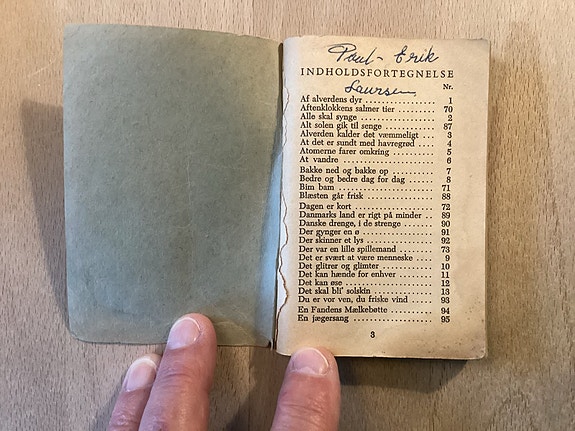 Poul-Erik
INDHOLDSFORTEGNELSE
Laursen
Nr.
Af alverdens dyr .................... 1
Aftenklokkens salmer tier .......... 70
Alle skal synge .................... 2
Alt solen gik til senge ............ 87
Alverden kalder det væmmeligt .. 3
At det er sundt med havregrød .. 4
Atomerne farer omkring .......... 5
At vandre ........................ 6
Bakke ned og bakke op .......... 7
Bedre og bedre dag for dag ...... 8
Bim bam .......................... 71
Blæsten går frisk ................ 88
Dagen er kort .................... 72
Danmarks land er rigt på minder .. 89
Danske drenge, i de strenge ...... 90
Der gynger en ø .................. 91
Der skinner et lys ................ 92
Der var en lille spillemand ........ 73
Det er svært at være menneske .... 9
Det glitrer og glimter ............ 10
Det kan hænde for enhver ........ 11
Det kan øse ...................... 12
Det skal bli' solskin .............. 13
Du er vor ven, du friske vind .... 93
En Fandens Mælkebøtte .......... 94
En jægersang .................... 95
3